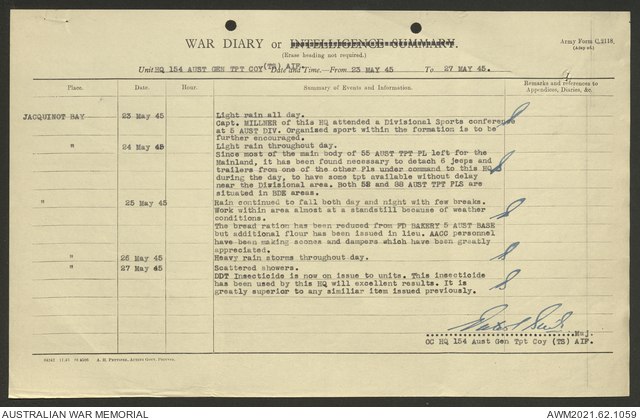 WAR DIARY or INTELLIGENCE SUMMARY.
(Erase heading not required.)
Army Form C.2118.
Unit HQ 154 AUST GEN TPT COY (TS) AIF. Date and Time.—From 23 MAY 45 To 27 MAY 45.
Place. Date. Hour. Summary of Events and Information. Remarks and references to
Appendices, Diaries, &c.
JACQUINOT BAY 23 May 45 Light rain all day.
Capt. MILLNER of this HQ attended a Divisional Sports conference
at 5 AUST DIV. Organised sport within the formation is to be
further encouraged.
" 24 May 45 Light rain throughout day.
Since most of the main body of 55 AUST TPT PL left for the
Mainland, it has been found necessary to detach 6 jeeps and
trailers from one of the other Pls under command to this HQ
during the day, to have some tpt available without delay
near the Divisional area. Both 52 and 88 AUST TPT PLS are
situated in BDE areas.
" 25 May 45 Rain continued to fall both day and night with few breaks.
Work within area almost at a standstill because of weather
conditions.
The bread ration has been reduced from FD BAKERY 5 AUST BASE
but additional flour has been issued in lieu. AACC personnel
have been making scones and dampers which have been greatly
appreciated.
" 26 May 45 Heavy rain storms throughout day.
" 27 May 45 Scattered showers.
DDT Insecticide is now on issue to units. This insecticide
has been used by this HQ will excellent results. It is
greatly superior to any similiar item issued previously.
Maj.
OC HQ 154 Aust Gen Tpt Coy (TS) AIF.
AUSTRALIAN WAR MEMORIAL AWM2021.62.1059